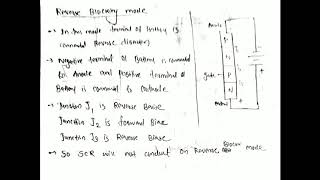 Reverse Blocking mode
→ In this mode terminal of battery is
connected Reverse direction
→ Negative terminal of Battery is connected
to Anode and Positive terminal of
Battery is connected to Cathode.
→ Junction J1 is Reverse Baise
Junction J2 is forward Bias
Junction J3 is Reverse Biase
→ So SCR will not conduct on Reverse Blocking mode
Anode
P
J1
J2
Gate
P
J3
Cathode
+